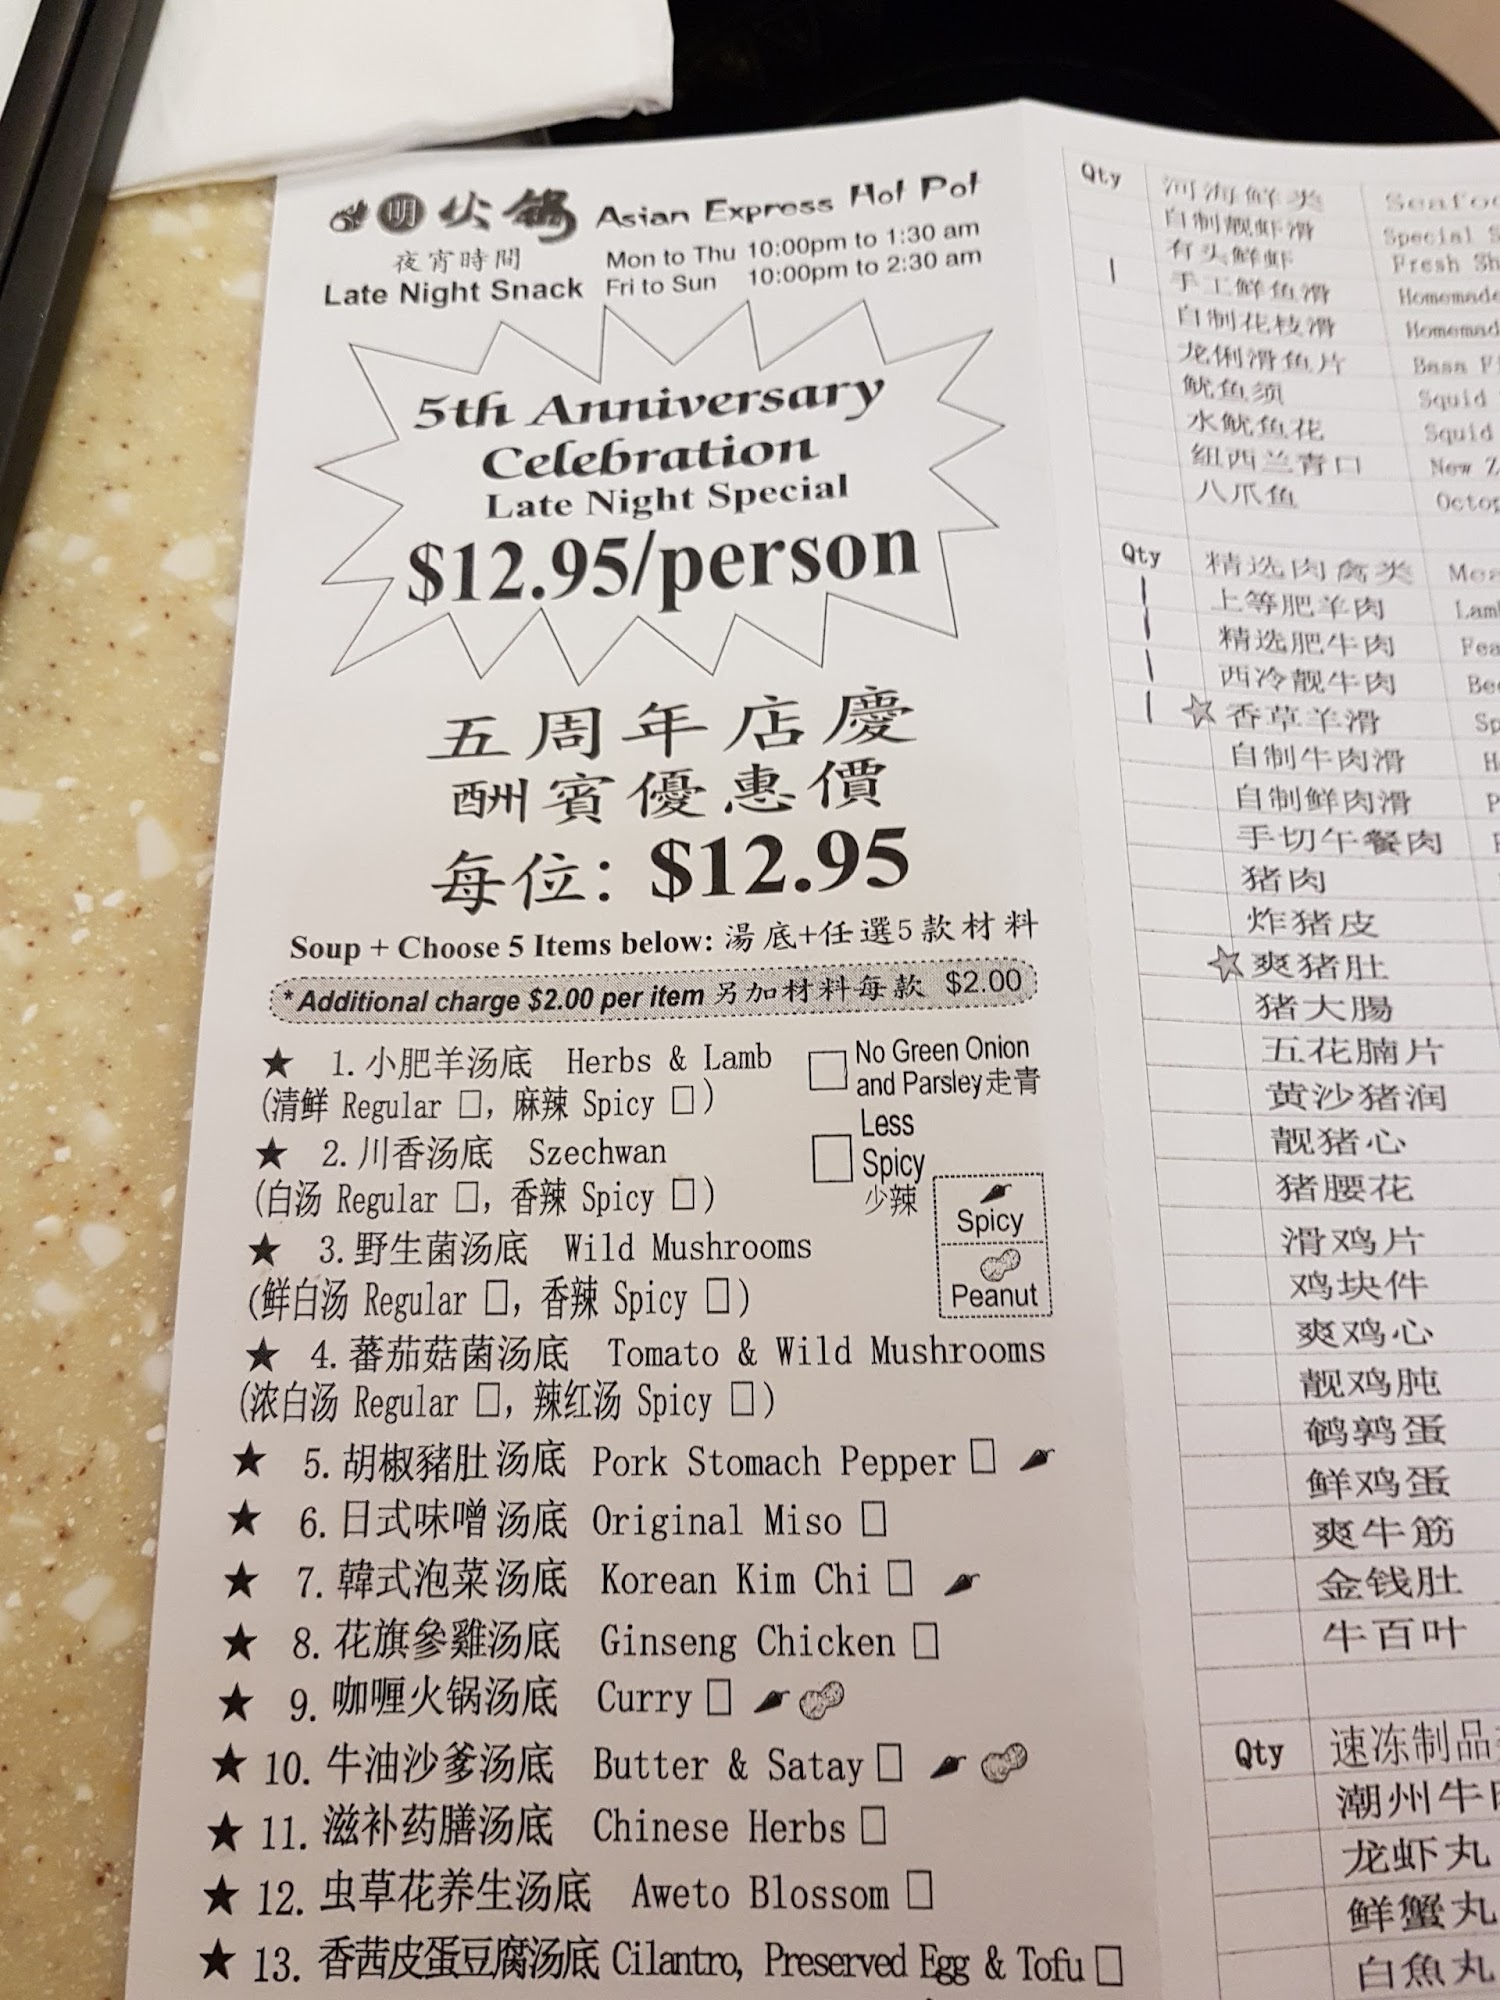 明火鍋 Asian Express Hot Pot
夜宵時間 Mon to Thu 10:00pm to 1:30 am
Late Night Snack Fri to Sun 10:00pm to 2:30 am
5th Anniversary
Celebration
Late Night Special
$12.95/person
五周年店慶
酬賓優惠價
每位: $12.95
Soup + Choose 5 Items below: 湯底+任選5款材料
* Additional charge $2.00 per item 另加材料每款 $2.00
★ 1. 小肥羊汤底 Herbs & Lamb
(清鲜 Regular □, 麻辣 Spicy □)
□ No Green Onion
and Parsley走青
★ 2. 川香汤底 Szechwan
(白汤 Regular □, 香辣 Spicy □)
□ Less
Spicy
少辣
Spicy
Peanut
★ 3. 野生菌汤底 Wild Mushrooms
(鲜白汤 Regular □, 香辣 Spicy □)
★ 4. 蕃茄菇菌汤底 Tomato & Wild Mushrooms
(浓白汤 Regular □, 辣红汤 Spicy □)
★ 5. 胡椒豬肚汤底 Pork Stomach Pepper □
★ 6. 日式味噌汤底 Original Miso □
★ 7. 韓式泡菜汤底 Korean Kim Chi □
★ 8. 花旗參雞汤底 Ginseng Chicken □
★ 9. 咖喱火锅汤底 Curry □
★ 10. 牛油沙爹汤底 Butter & Satay □
★ 11. 滋补药膳汤底 Chinese Herbs □
★ 12. 虫草花养生汤底 Aweto Blossom □
★ 13. 香茜皮蛋豆腐汤底 Cilantro, Preserved Egg & Tofu □
Qty 河海鲜类
自制靓虾滑 Special
有头鲜虾 Fresh
手工鲜鱼滑 Homemade
自制花枝滑
龙俐滑鱼片 Basa
鱿鱼须 Squid
水鱿鱼花 Squid
纽西兰青口 New
八爪鱼
Qty 精选肉禽类
上等肥羊肉
精选肥牛肉
西冷靓牛肉
☆ 香草羊滑
自制牛肉滑
自制鲜肉滑
手切午餐肉
猪肉
炸猪皮
☆ 爽猪肚
猪大腸
五花腩片
黄沙猪润
靓猪心
猪腰花
滑鸡片
鸡块件
爽鸡心
靓鸡肫
鹌鹑蛋
鲜鸡蛋
爽牛筋
金钱肚
牛百叶
Qty 速冻制品
潮州牛
龙虾丸
鲜蟹丸
白魚丸